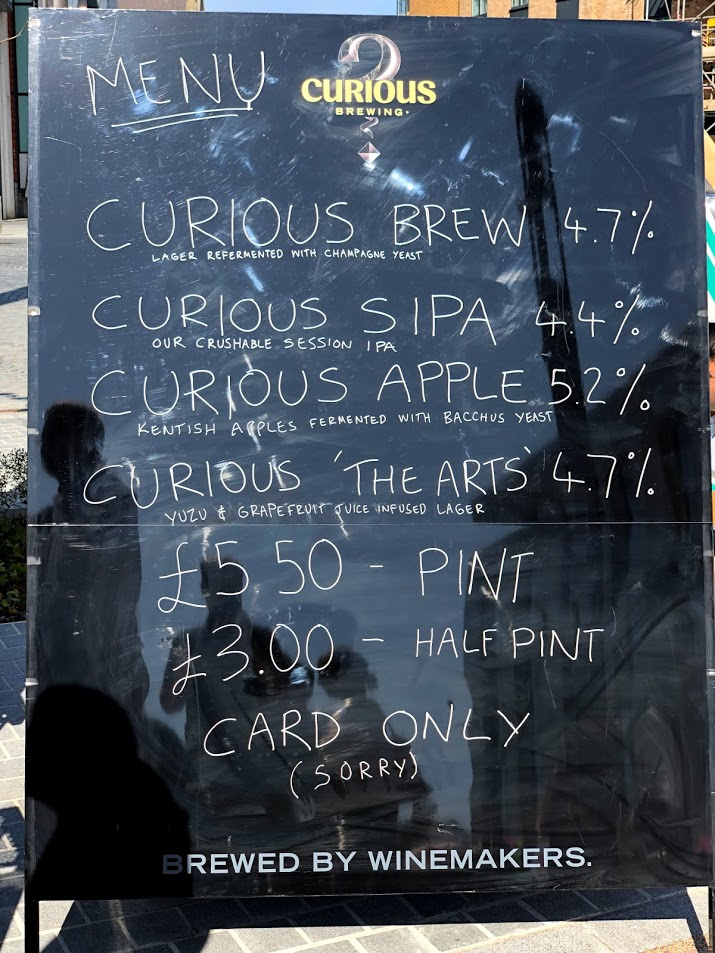 MENU
CURIOUS
BREWING
CURIOUS BREW 4.7%
LAGER REFERMENTED WITH CHAMPAGNE YEAST
CURIOUS SIPA 4.4%
OUR CRUSHABLE SESSION IPA
CURIOUS APPLE 5.2%
KENTISH APPLES FERMENTED WITH BACCHUS YEAST
CURIOUS 'THE ARTS' 4.7%
YUZU & GRAPEFRUIT JUICE INFUSED LAGER
£5.50 - PINT
£3.00 - HALF PINT
CARD ONLY
(SORRY)
BREWED BY WINEMAKERS.